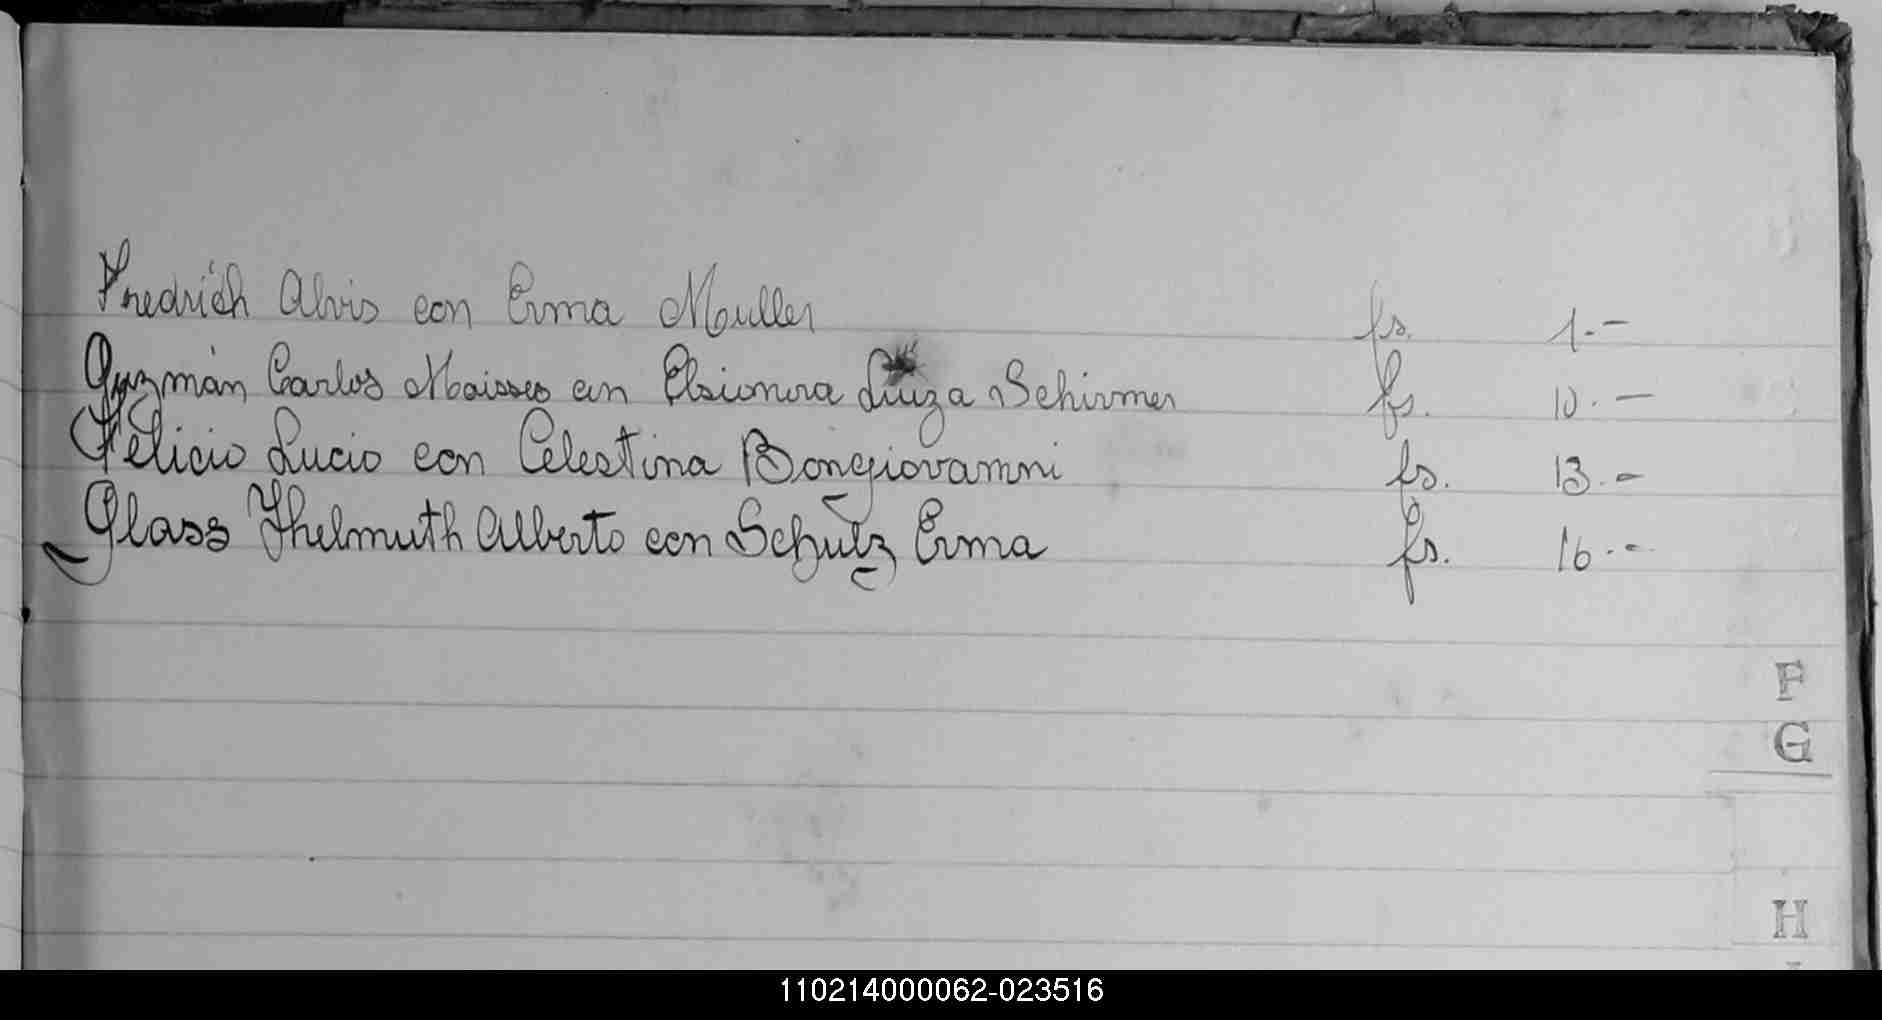 Fredrich Alvis con Erma Muller fs. 1.-
Guzmán Carlos Moisses con Elsionora Luiza Schirmer fs. 10.-
Felicio Lucio con Celestina Bongiovanni fs. 13.-
Glass Thelmuth Alberto con Schulz Erma fs. 16.-
F
G
H
110214000062-023516